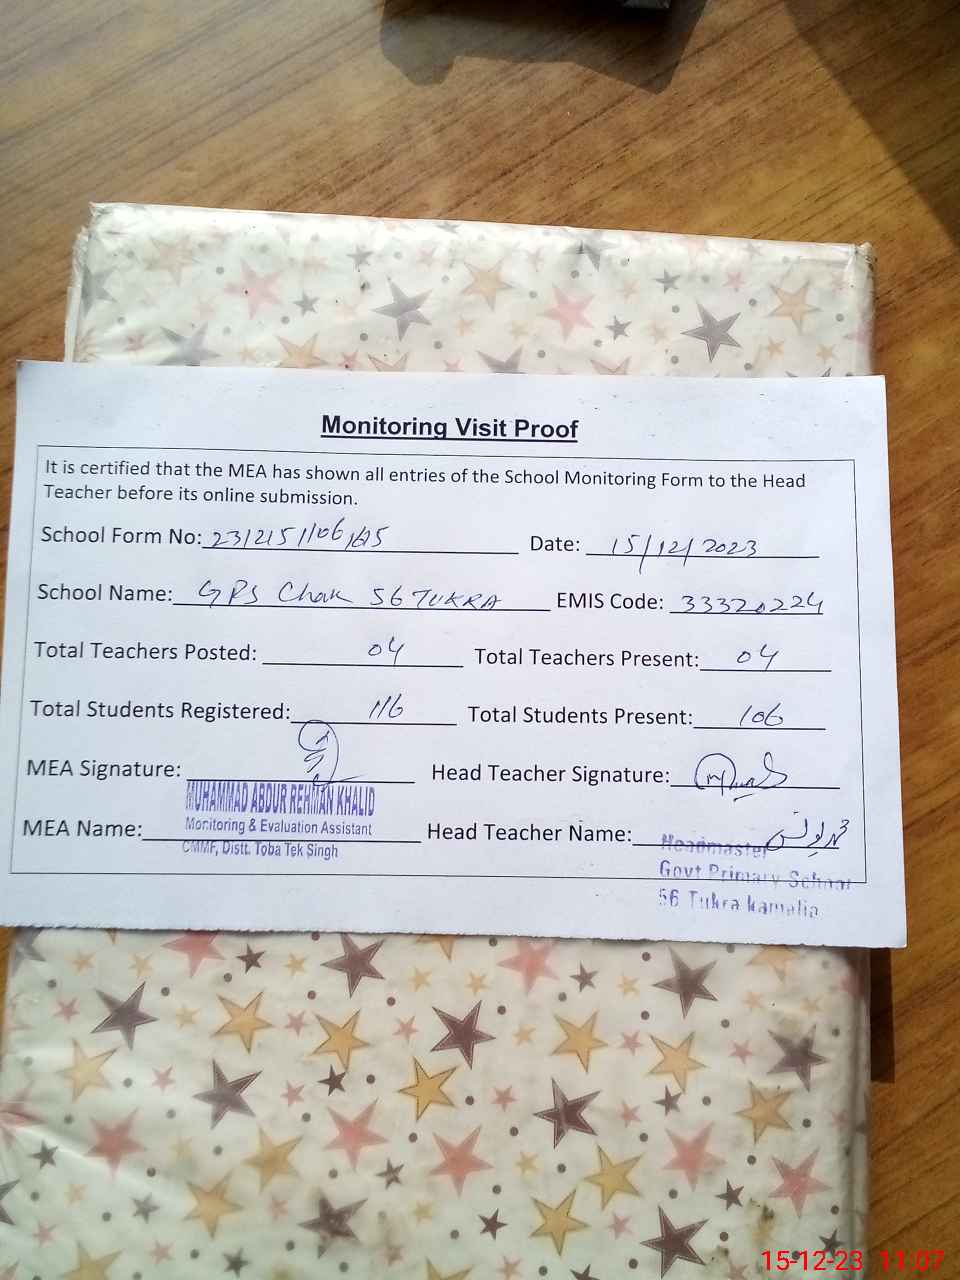 Monitoring Visit Proof
It is certified that the MEA has shown all entries of the School Monitoring Form to the Head
Teacher before its online submission.
School Form No: Date: 15/12/2023
School Name: GPS Chak 56 TUKRA EMIS Code: 33320224
Total Teachers Posted: 04 Total Teachers Present: 04
Total Students Registered: 116 Total Students Present: 106
MEA Signature: Head Teacher Signature:
MUHAMMAD ABDUR REHMAN KHALID
Monitoring & Evaluation Assistant
CMMF, Distt. Toba Tek Singh
MEA Name: Head Teacher Name: محمد یونس
Headmaster
Govt Primary School
56 Tukra kamalia
15-12-23 11:07